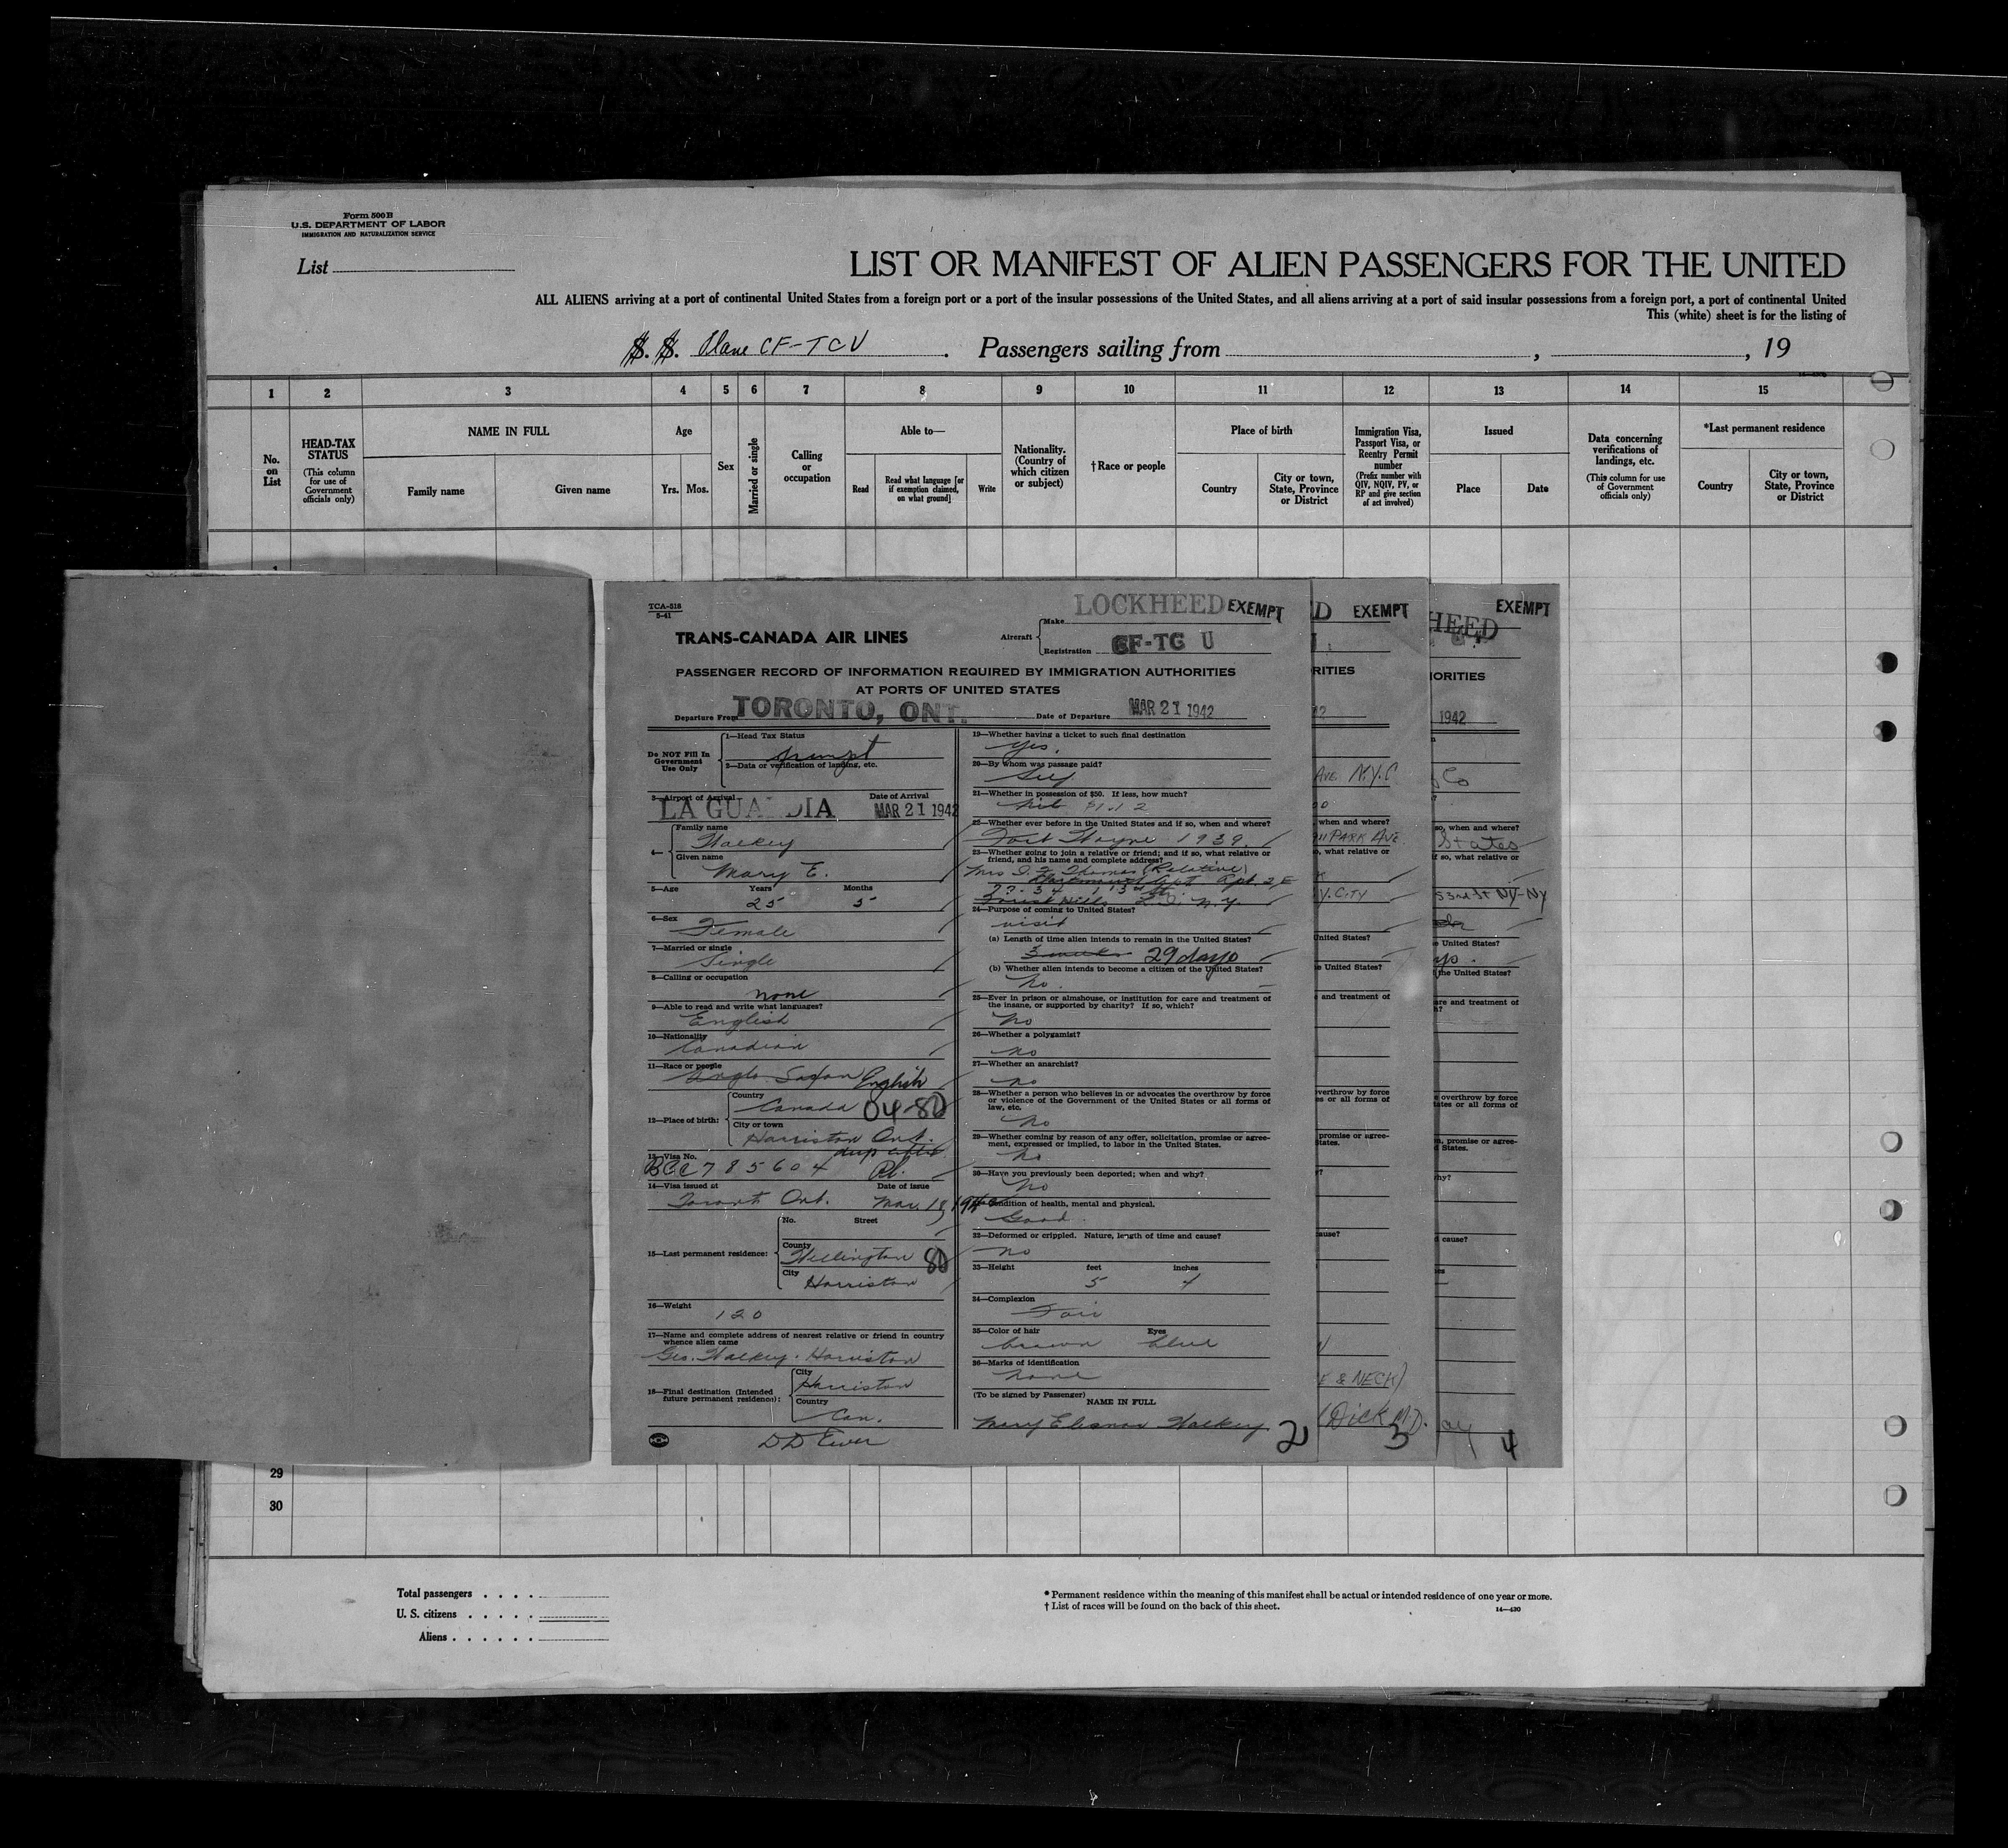 Form 500B
U.S. DEPARTMENT OF LABOR
IMMIGRATION AND NATURALIZATION SERVICE
List
LIST OR MANIFEST OF ALIEN PASSENGERS FOR THE UNITED
ALL ALIENS arriving at a port of continental United States from a foreign port or a port of the insular possessions of the United States, and all aliens arriving at a port of said insular possessions from a foreign port, a port of continental United
This (white) sheet is for the listing of
S. S. Plane CF-TCV . Passengers sailing from , , 19
1 2 3 4 5 6 7 8 9 10 11 12 13 14 15
No. on List
HEAD-TAX STATUS
(This column for use of Government officials only)
NAME IN FULL
Family name
Given name
Age
Yrs. Mos.
Sex
Married or single
Calling or occupation
Able to—
Read
Read what language [or if exemption claimed, on what ground]
Write
Nationality. (Country of which citizen or subject)
†Race or people
Place of birth
Country
City or town, State, Province or District
Immigration Visa, Passport Visa, or Reentry Permit number
(Prefix number with QIV, NQIV, PV, or RP and give section of act involved)
Issued
Place
Date
Data concerning verifications of landings, etc.
(This column for use of Government officials only)
*Last permanent residence
Country
City or town, State, Province or District
TCA-318
5-41
LOCKHEED EXEMPT
TRANS-CANADA AIR LINES
Aircraft
Make
Registration CF-TC U
PASSENGER RECORD OF INFORMATION REQUIRED BY IMMIGRATION AUTHORITIES
AT PORTS OF UNITED STATES
Departure From TORONTO, ONT. Date of Departure MAR 21 1942
Do NOT Fill In
Government
Use Only
1—Head Tax Status
2—Data or verification of landing, etc.
3—Airport of Arrival Date of Arrival
LA GUARDIA MAR 21 1942
4—
Family name
Walkey
Given name
Mary E.
5—Age Years Months
25 5
6—Sex
Female
7—Married or single
Single
8—Calling or occupation
none
9—Able to read and write what languages?
English
10—Nationality
Canadian
11—Race or people
Anglo Saxon English
12—Place of birth:
Country
Canada 04-80
City or town
Harriston Ont.
13—Visa No.
BCC 785604
14—Visa issued at Date of issue
Toronto Ont. Mar. 18, 1942
15—Last permanent residence:
No. Street
County
Wellington 80
City
Harriston
16—Weight
120
17—Name and complete address of nearest relative or friend in country
whence alien came
Geo. Walkey - Harriston
18—Final destination (Intended
future permanent residence):
City
Harriston
Country
Can.
19—Whether having a ticket to such final destination
Yes.
20—By whom was passage paid?
Self
21—Whether in possession of $50. If less, how much?
22—Whether ever before in the United States and if so, when and where?
Fort Wayne 1939.
23—Whether going to join a relative or friend; and if so, what relative or
friend, and his name and complete address?
Thomas (Relative)
Apt. 2 E
Forest Hills L.I. N.Y.
24—Purpose of coming to United States?
visit
(a) Length of time alien intends to remain in the United States?
3 weeks 29 days
(b) Whether alien intends to become a citizen of the United States?
No.
25—Ever in prison or almshouse, or institution for care and treatment of
the insane, or supported by charity? If so, which?
No
26—Whether a polygamist?
No
27—Whether an anarchist?
No
28—Whether a person who believes in or advocates the overthrow by force
or violence of the Government of the United States or all forms of
law, etc.
No
29—Whether coming by reason of any offer, solicitation, promise or agree-
ment, expressed or implied, to labor in the United States.
No
30—Have you previously been deported; when and why?
No
Condition of health, mental and physical.
Good.
32—Deformed or crippled. Nature, length of time and cause?
no
33—Height feet inches
5 4
34—Complexion
Fair
35—Color of hair Eyes
brown blue
36—Marks of identification
none
(To be signed by Passenger)
NAME IN FULL
Mary Eleanor Walkey
2
D EXEMPT
RITIES
Ave. N.Y.C
when and where?
PARK AVE.
o, what relative or
Y. CITY
United States?
e United States?
and treatment of
overthrow by force
es or all forms of
promise or agree-
States.
cause?
E & NECK)
Dick M.D.
3
HEED EXEMPT
IORITIES
1942
Co
so, when and where?
States
if so, what relative or
53rd St NY-NY
e United States?
the United States?
are and treatment of
e overthrow by force
tates or all forms of
n, promise or agree-
d States.
why?
d cause?
es
4
29
30
Total passengers
U. S. citizens
Aliens
* Permanent residence within the meaning of this manifest shall be actual or intended residence of one year or more.
† List of races will be found on the back of this sheet.
14—430